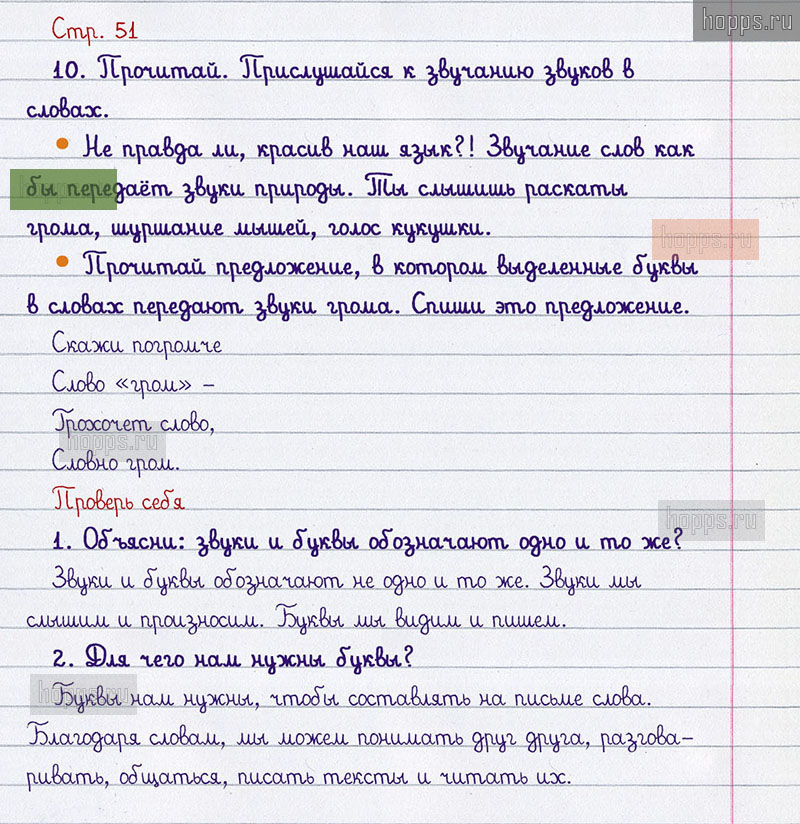 hopps.ru
Стр. 51
10. Прочитай. Прислушайся к звучанию звуков в
словах.
• Не правда ли, красив наш язык?! Звучание слов как
бы передаёт звуки природы. Ты слышишь раскаты
грома, шуршание мышей, голос кукушки.
hopps.ru
• Прочитай предложение, в котором выделенные буквы
в словах передают звуки грома. Спиши это предложение.
Скажи погромче
Слово «гром» –
Грохочет слово,
hopps.ru
Словно гром.
Проверь себя
hopps.ru
1. Объясни: звуки и буквы обозначают одно и то же?
Звуки и буквы обозначают не одно и то же. Звуки мы
слышим и произносим. Буквы мы видим и пишем.
2. Для чего нам нужны буквы?
hopps.ru
Буквы нам нужны, чтобы составлять на письме слова.
Благодаря словам, мы можем понимать друг друга, разгова-
ривать, общаться, писать тексты и читать их.